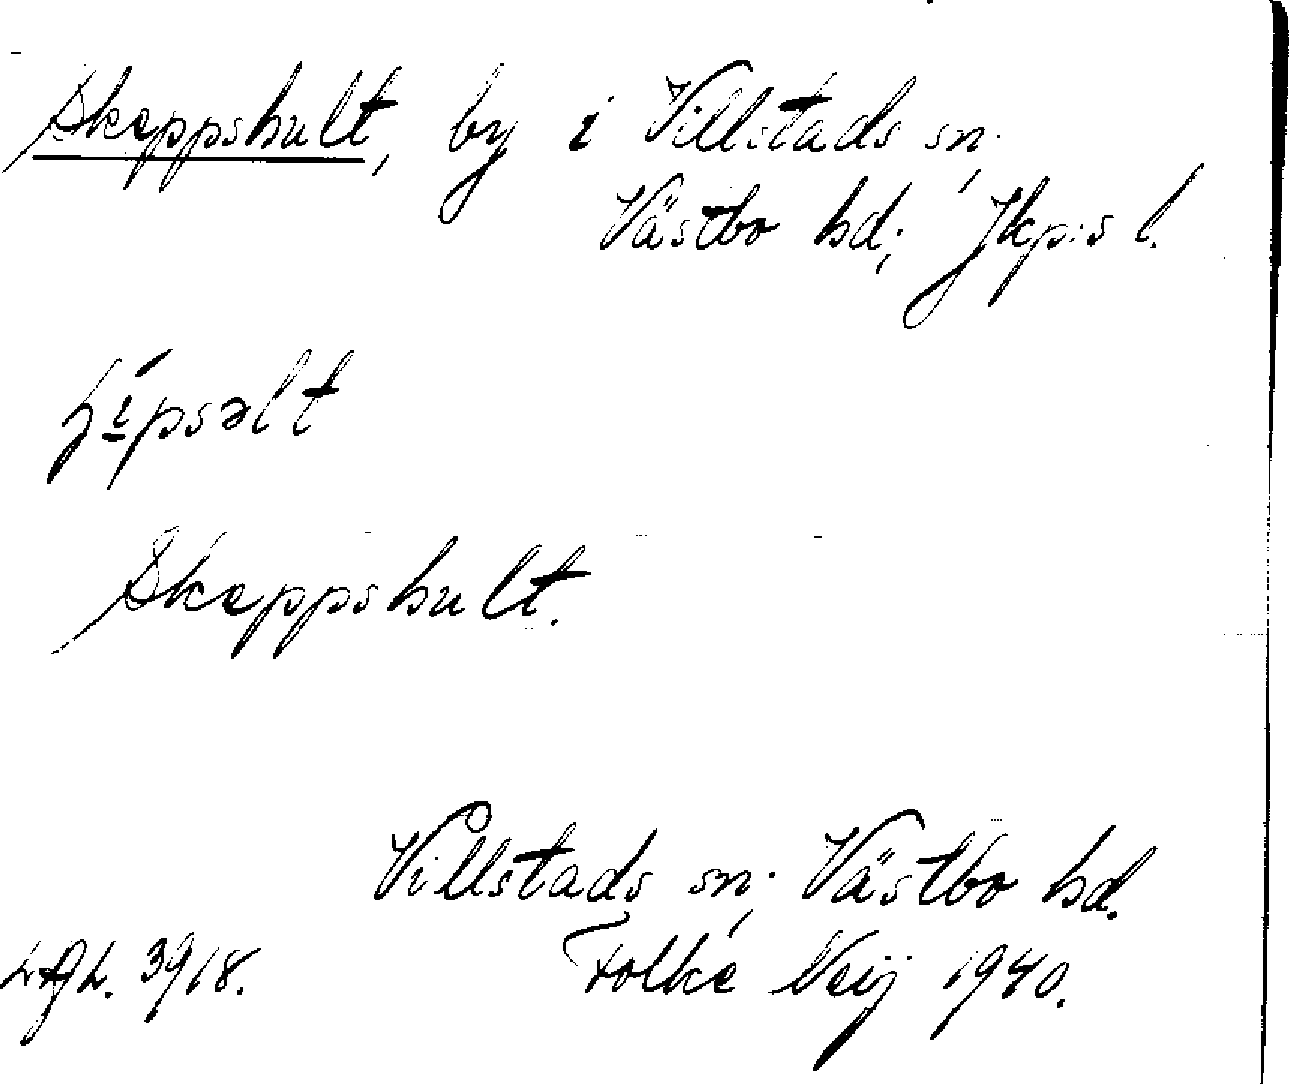 Skeppshult, by i Villstads sn.,
Västbo hd., Jkp:s l.
Skeppshult.
Villstads sn., Västbo hd.
3918. Folke Neij 1940.